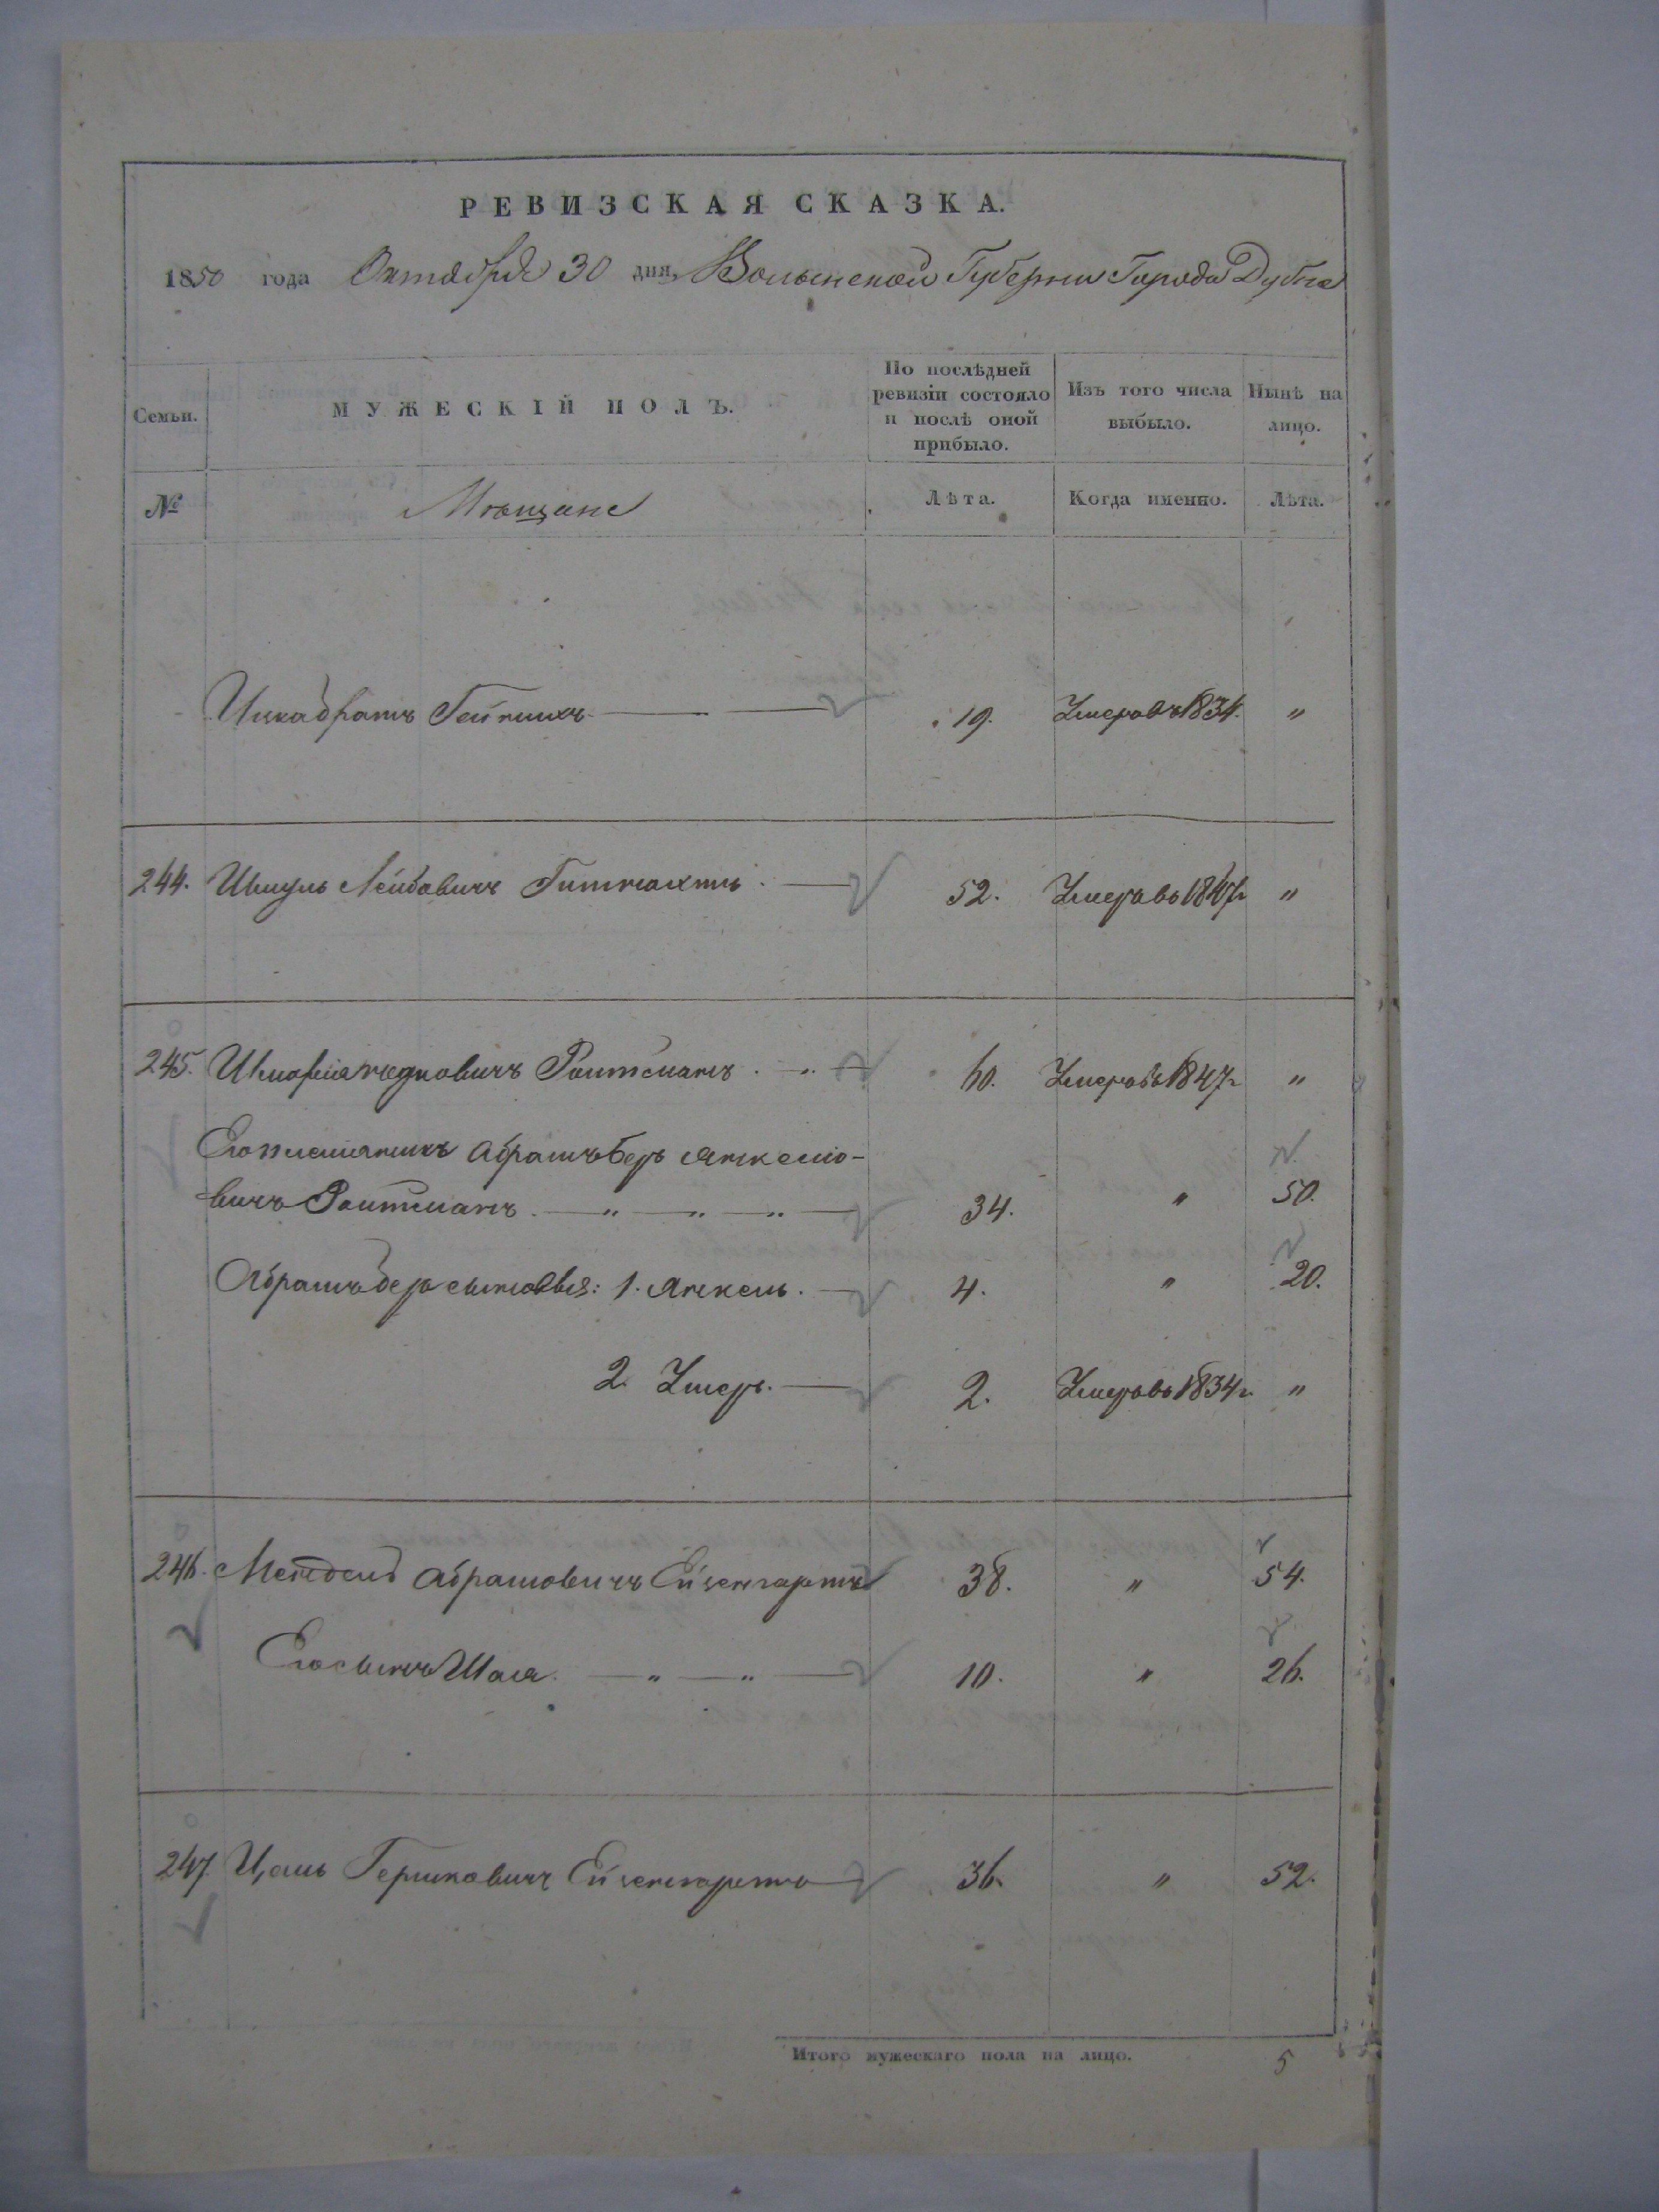 РЕВИЗСКАЯ СКАЗКА.
1850 года Октября 30 дня, Волынской Губернии Города Дубна
Семьи. МУЖЕСКІЙ ПОЛЪ. По послѣдней ревизіи состояло и послѣ оной прибыло. Изъ того числа выбыло. Нынѣ на лицо.
№ Мѣщане Лѣта. Когда именно. Лѣта.
братъ 19. Умеръ въ 1834. "
244. Шмуль Лейбовичъ 52. Умеръ въ 1847г "
245. Ройтманъ. 60. Умеръ въ 1847г "
Его племянникъ Абрамъ Беръ Янкелио-
вичъ Ройтманъ. 34. " 50.
Абрамъ Бера сыновья: 1. Янкель. 4. " 20.
2. Умеръ. 2. Умеръ въ 1834г. "
246. Мендель Абрамовичъ Ейзенгартъ 38. " 54.
Его сынъ Шая. 10. " 26.
247. Гершковичъ Ейзенгартъ 36. " 52.
Итого мужескаго пола на лицо. 5